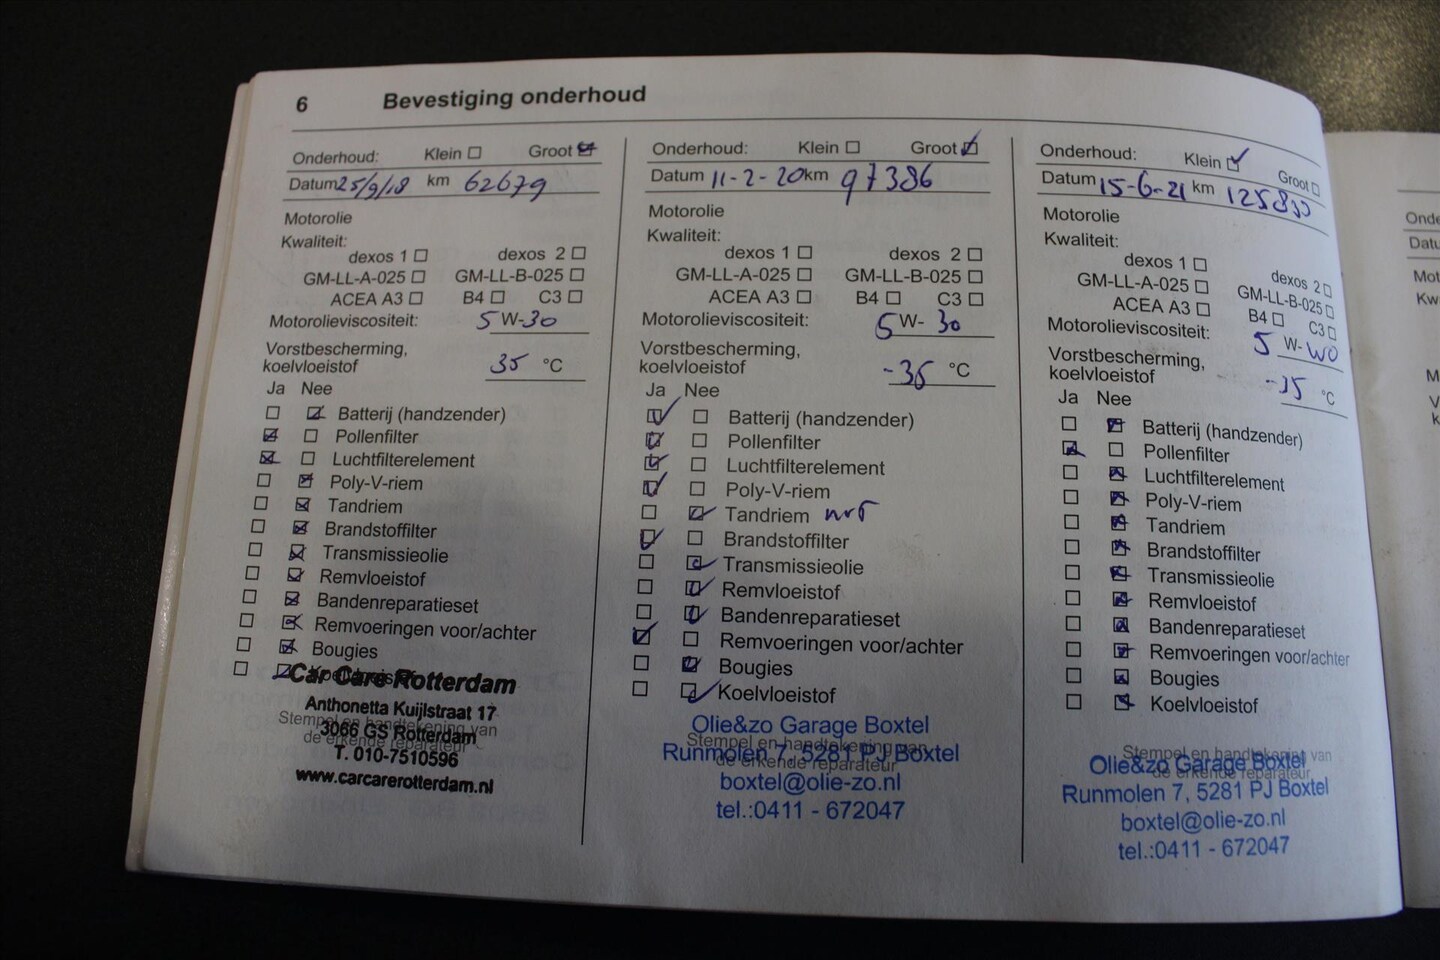 6 Bevestiging onderhoud
Onderhoud: Klein Groot
Datum 25/9/18 km 62679
Motorolie
Kwaliteit:
dexos 1 dexos 2
GM-LL-A-025 GM-LL-B-025
ACEA A3 B4 C3
Motorolieviscositeit: 5 W-30
Vorstbescherming,
koelvloeistof 35 °C
Ja Nee
Batterij (handzender)
Pollenfilter
Luchtfilterelement
Poly-V-riem
Tandriem
Brandstoffilter
Transmissieolie
Remvloeistof
Bandenreparatieset
Remvoeringen voor/achter
Bougies
Koelvloeistof
Car Care Rotterdam
Anthonetta Kuijlstraat 17
Stempel en handtekening van
3066 GS Rotterdam
de erkende reparateur
T. 010-7510596
www.carcarerotterdam.nl
Onderhoud: Klein Groot
Datum 11-2-20 km 97386
Motorolie
Kwaliteit:
dexos 1 dexos 2
GM-LL-A-025 GM-LL-B-025
ACEA A3 B4 C3
Motorolieviscositeit: 5 W-30
Vorstbescherming,
koelvloeistof -35 °C
Ja Nee
Batterij (handzender)
Pollenfilter
Luchtfilterelement
Poly-V-riem
Tandriem
Brandstoffilter
Transmissieolie
Remvloeistof
Bandenreparatieset
Remvoeringen voor/achter
Bougies
Koelvloeistof
Olie&zo Garage Boxtel
Stempel en handtekening van
Runmolen 7, 5281 PJ Boxtel
de erkende reparateur
boxtel@olie-zo.nl
tel.:0411 - 672047
Onderhoud: Klein Groot
Datum 15-6-21 km
Motorolie
Kwaliteit:
dexos 1 dexos 2
GM-LL-A-025 GM-LL-B-025
ACEA A3 B4 C3
Motorolieviscositeit: 5 W-
Vorstbescherming,
koelvloeistof -35 °C
Ja Nee
Batterij (handzender)
Pollenfilter
Luchtfilterelement
Poly-V-riem
Tandriem
Brandstoffilter
Transmissieolie
Remvloeistof
Bandenreparatieset
Remvoeringen voor/achter
Bougies
Koelvloeistof
Stempel en handtekening van
Olie&zo Garage Boxtel
de erkende reparateur
Runmolen 7, 5281 PJ Boxtel
boxtel@olie-zo.nl
tel.:0411 - 672047